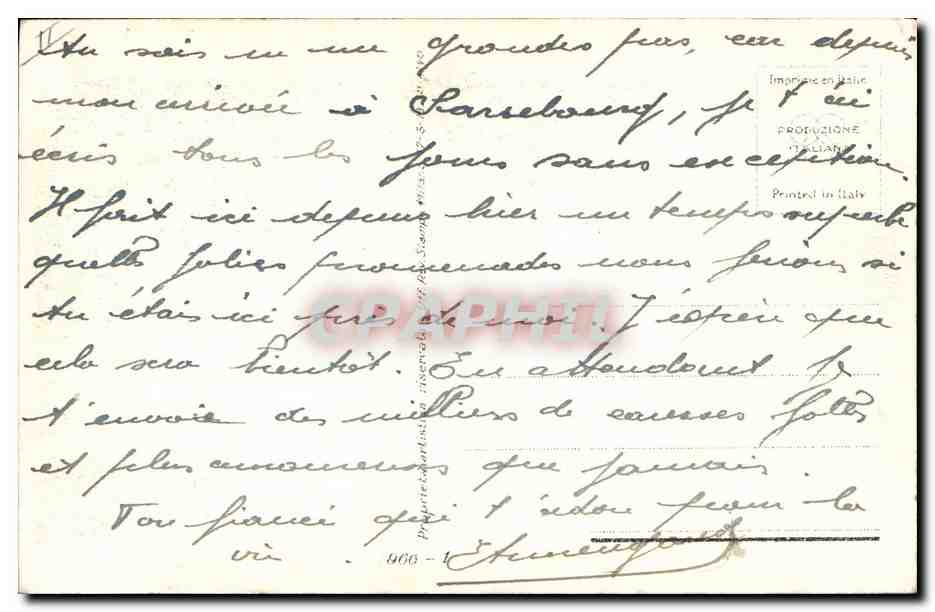 Tu sais ne me grondes pas, car depuis
mon arrivée à Sarrebourg, je t'ai
écris tous les jours sans exception.
Il fait ici depuis hier un temps superbe
quelles jolies promenades nous ferions si
tu étais ici près de moi. J'espère que
cela sera bientôt. En attendant je
t'envoie des milliers de caresses folles
et plus amoureuses que jamais.
Ton fiancé qui t'adore pour la
vie.
966 - 1
Imprimé en Italie
PRODUZIONE
ITALIANA
Printed in Italy
Proprietà artistica riservata
CPAPHIL